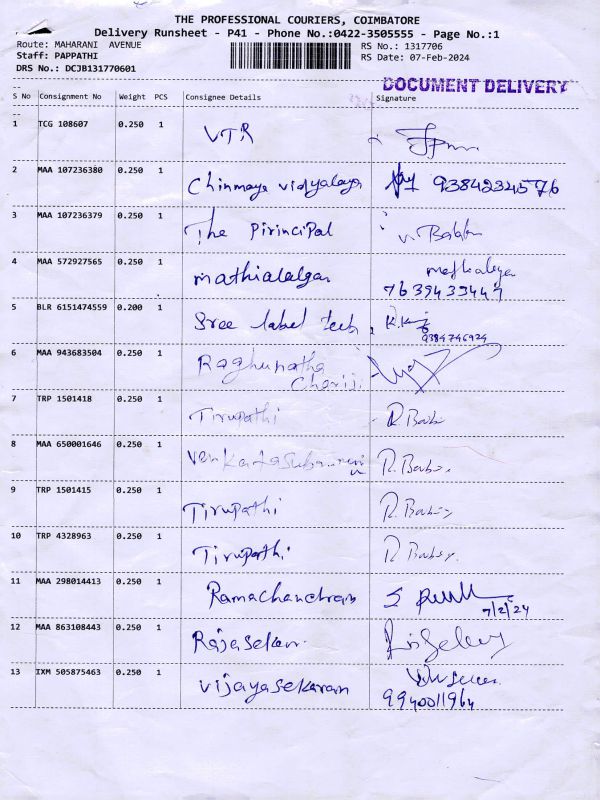 THE PROFESSIONAL COURIERS, COIMBATORE
Delivery Runsheet - P41 - Phone No.:0422-3505555 - Page No.:1
Route: MAHARANI AVENUE
RS No.: 1317706
Staff: PAPPATHI
RS Date: 07-Feb-2024
DRS No.: DCJB131770601
DOCUMENT DELIVERY
S No Consignment No Weight PCS Consignee Details Signature
1 TCG 108607 0.250 1 VTR
2 MAA 107236380 0.250 1 Chinmaya vidyalaya 9384234576
3 MAA 107236379 0.250 1 The Pirincipal
4 MAA 572927565 0.250 1 mathialalgan
7639433447
5 BLR 6151474559 0.200 1 Sree label tech
9384746924
6 MAA 943683504 0.250 1 Raghupatha
Chariji
7 TRP 1501418 0.250 1 Tirupathi R. Babu
8 MAA 650001646 0.250 1 R. Babu
9 TRP 1501415 0.250 1 Tirupathi R. Babu
10 TRP 4328963 0.250 1 Tirupathi R. Babu
11 MAA 298014413 0.250 1 Ramachandran
7/2/24
12 MAA 863108443 0.250 1 Rajasekar
13 IXM 505875463 0.250 1 vijayasekaram
9940011964